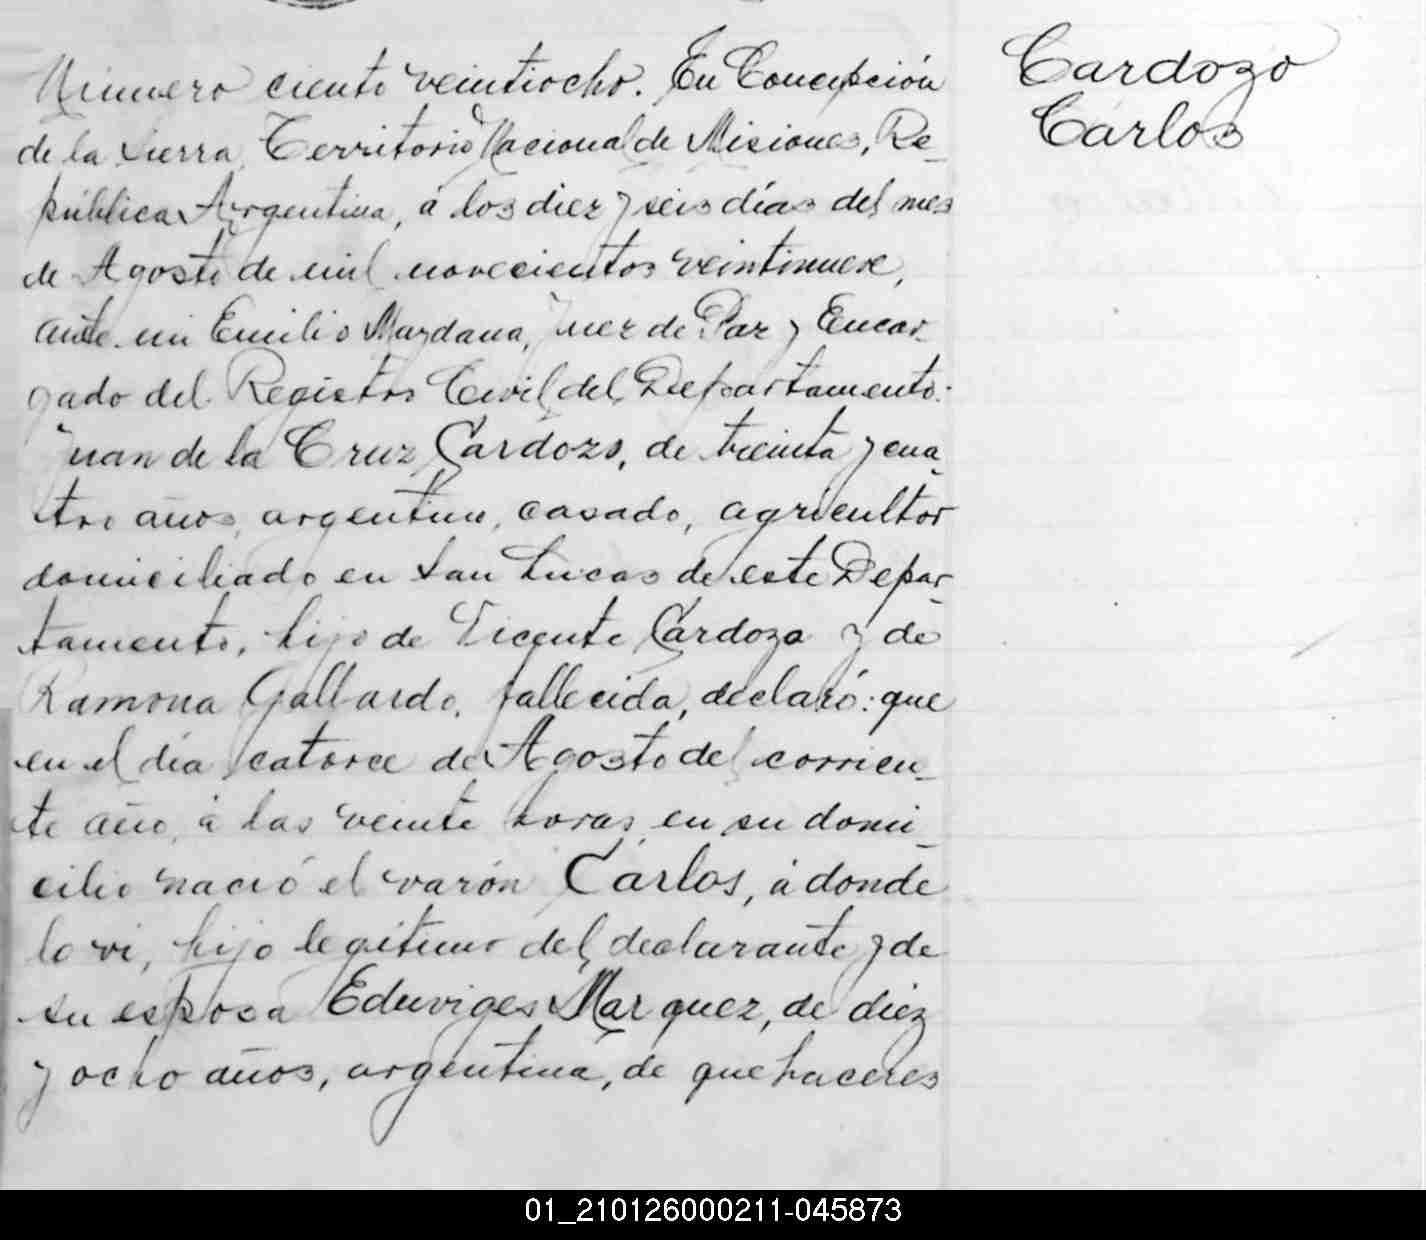 Número ciento veintiocho. En Concepción
de la Sierra, Territorio Nacional de Misiones, Re-
pública Argentina, á los diez y seis días del mes
de Agosto de mil novecientos veintinueve,
ante mi Emilio Maydana, Juez de Paz y Encar-
gado del Registro Civil del Departamento:
Juan de la Cruz Cardozo, de treinta y cua-
tro años, argentino, casado, agricultor
domiciliado en San Lucas de este Depar-
tamento, hijo de Vicente Cardozo y de
Ramona Gallardo, fallecida, declaró: que
en el día catorce de Agosto del corrien-
te año, á las veinte horas, en su domi-
cilio nació el varón Cárlos, á donde
lo vi, hijo legítimo del declarante y de
su esposa Eduviges Marquez, de diez
y ocho años, argentina, de quehaceres
Cardozo
Cárlos
01_210126000211-045873